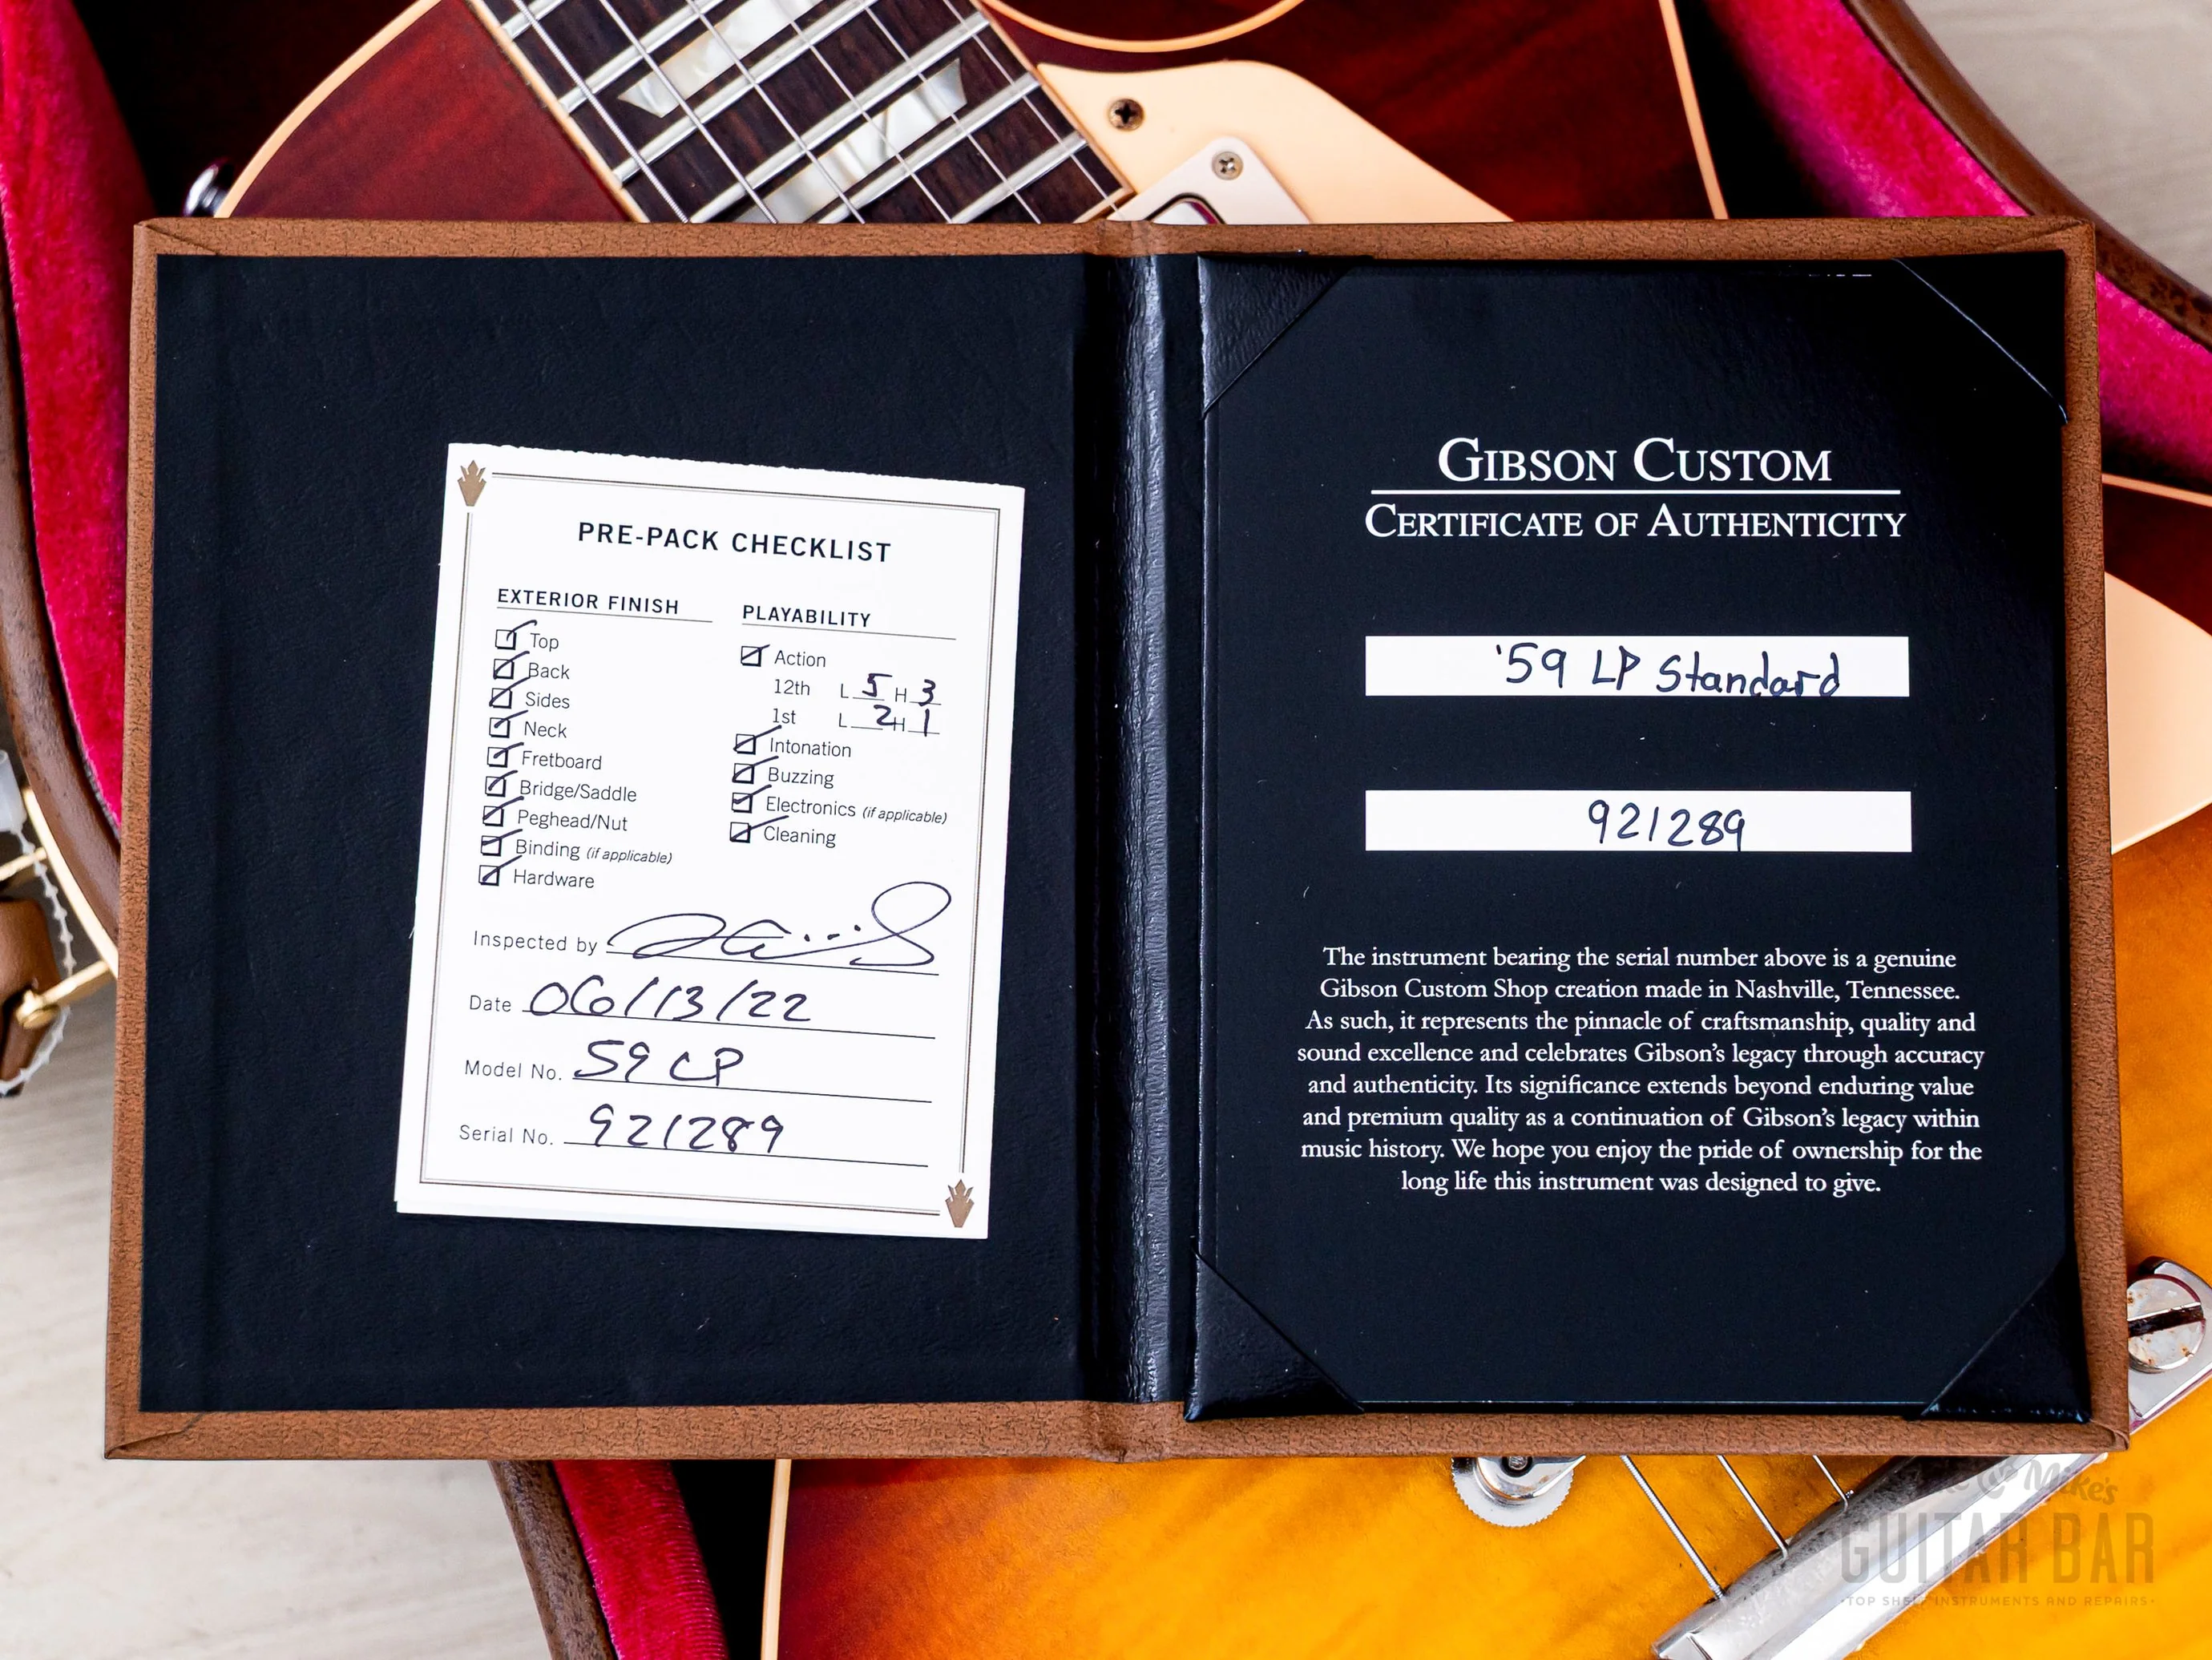 PRE-PACK CHECKLIST
EXTERIOR FINISH
Top
Back
Sides
Neck
Fretboard
Bridge/Saddle
Peghead/Nut
Binding (if applicable)
Hardware
PLAYABILITY
Action
12th L 5 H 3
1st L 2 H 1
Intonation
Buzzing
Electronics (if applicable)
Cleaning
Inspected by
Date 06/13/22
Model No. 59 LP
Serial No. 921289
GIBSON CUSTOM
CERTIFICATE OF AUTHENTICITY
'59 LP Standard
921289
The instrument bearing the serial number above is a genuine
Gibson Custom Shop creation made in Nashville, Tennessee.
As such, it represents the pinnacle of craftsmanship, quality and
sound excellence and celebrates Gibson's legacy through accuracy
and authenticity. Its significance extends beyond enduring value
and premium quality as a continuation of Gibson's legacy within
music history. We hope you enjoy the pride of ownership for the
long life this instrument was designed to give.
& Mike's
GUITAR BAR
·TOP SHELF INSTRUMENTS AND REPAIRS·